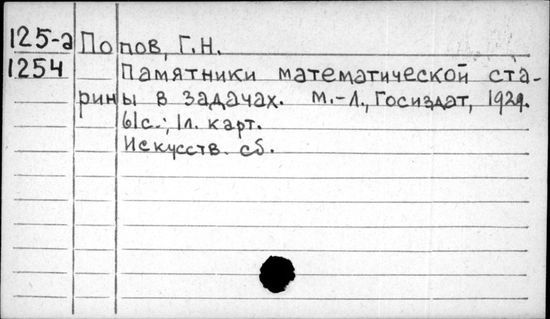 125-а Попов, Г.Н.
1254 Памятники математической ста-
рины в задачах. М.-Л., Госиздат, 1929.
61с.; 1л. карт.
Искусств. сб.